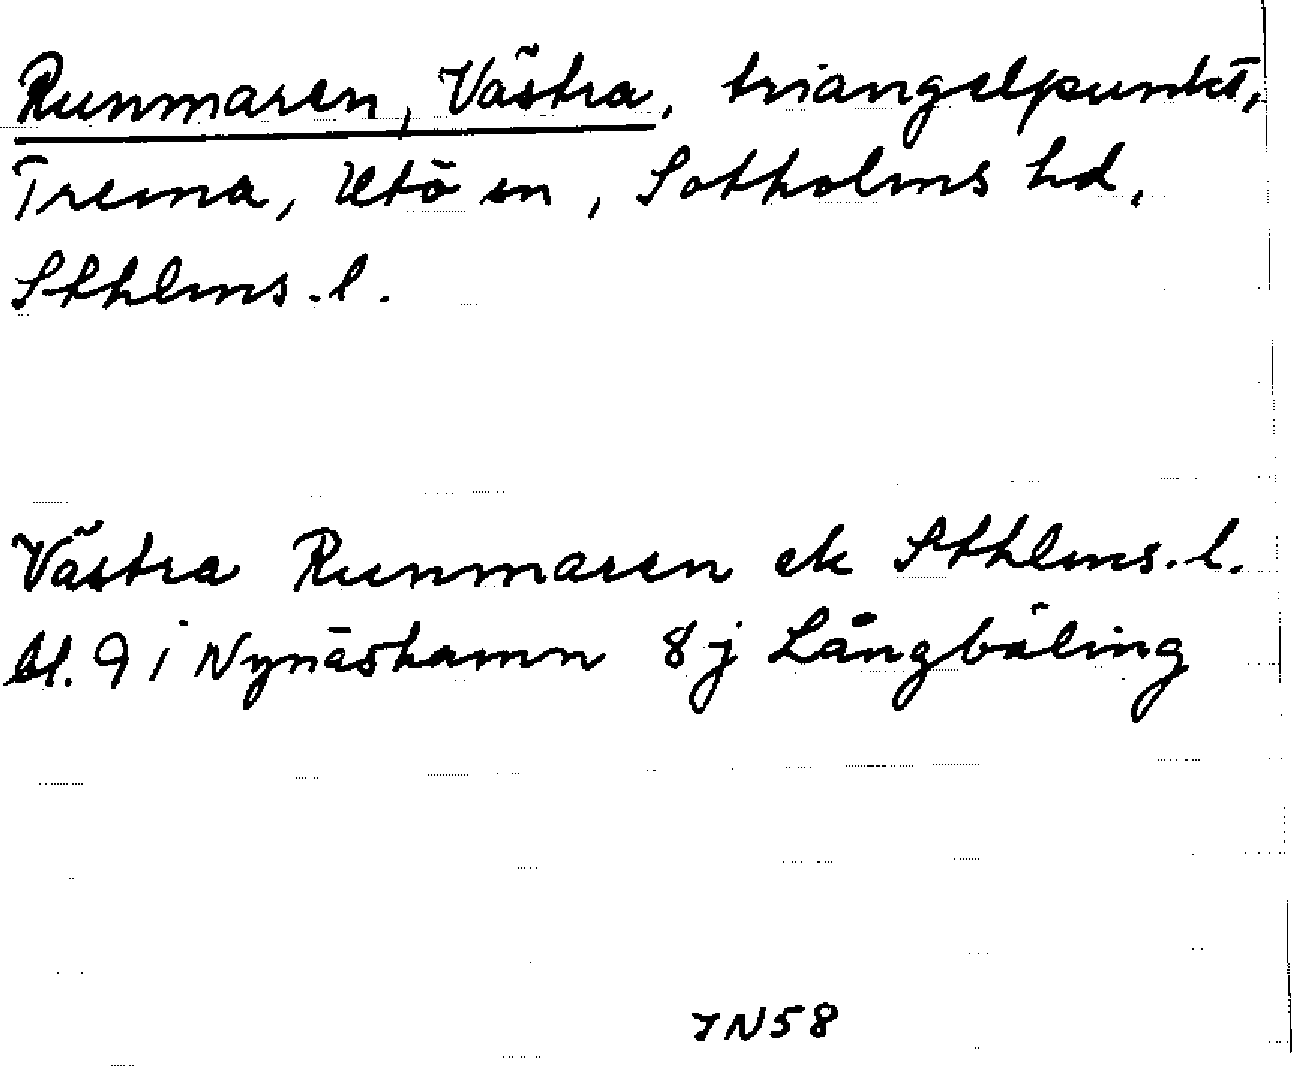 Runmaren, Västra, triangelpunkt,
Trema, Utö sn, Sotholms hd,
Sthlms.l.
Västra Runmaren ek Sthlms.l.
bl. 9 i Nynäshamn 8j Långbäling
7N58